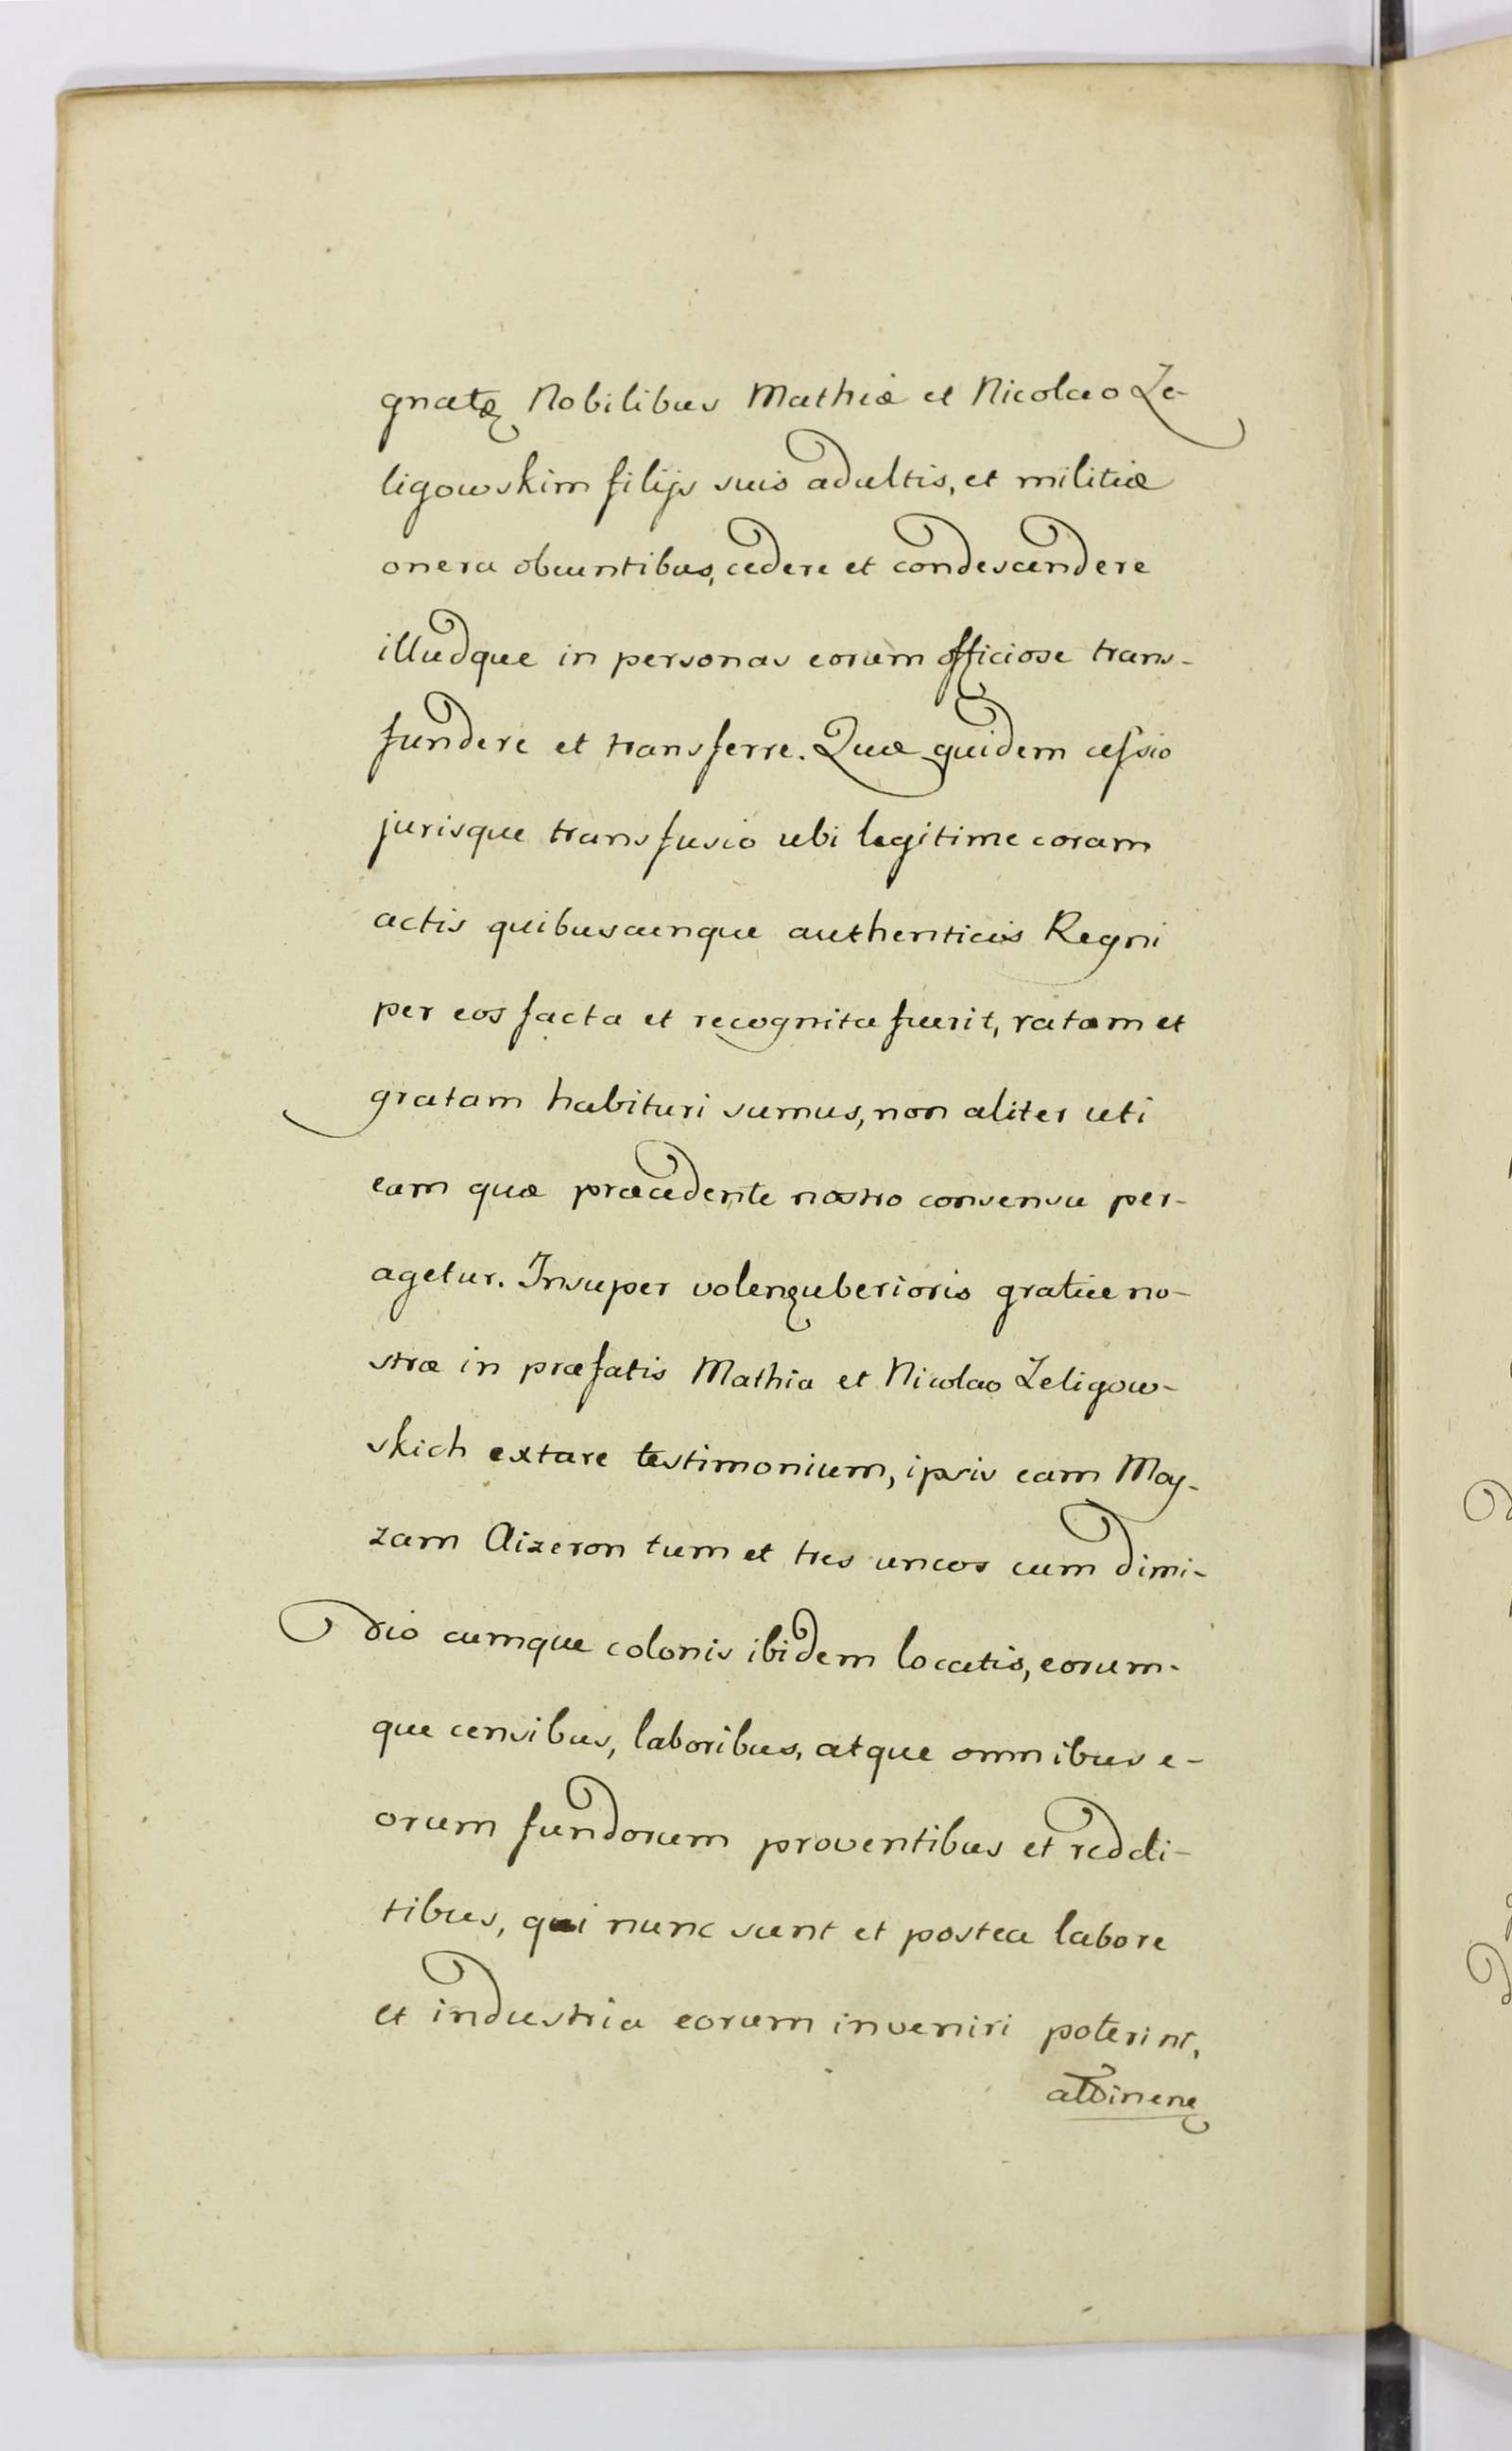 gnatæ Nobilibus Mathiæ et Nicolao Ze-
ligowskim filijs suis adultis, et militiæ
onera obeuntibus, cedere et condescendere
illudque in personas eorum officiose trans-
fundere et transferre. Quæ quidem cessio
jurisque transfusio ubi legitime coram
actis quibuscunque authenticis Regni
per eos facta et recognita fuerit, ratam et
gratam habituri sumus, non aliter uti
eam quæ præcedente nostro consensu per-
agetur. Insuper volenq uberioris gratiæ no-
stræ in præfatis Mathia et Nicolao Zeligow-
skich extare testimonium, ipsis eam May-
zam Aizeron tum et tres uncos cum dimi-
dio cumque colonis ibidem locatis, eorum-
que censibus, laboribus, atque omnibus e-
orum fundorum proventibus et reddi-
tibus, qui nunc sunt et postea labore
et industria eorum inveniri poterint,